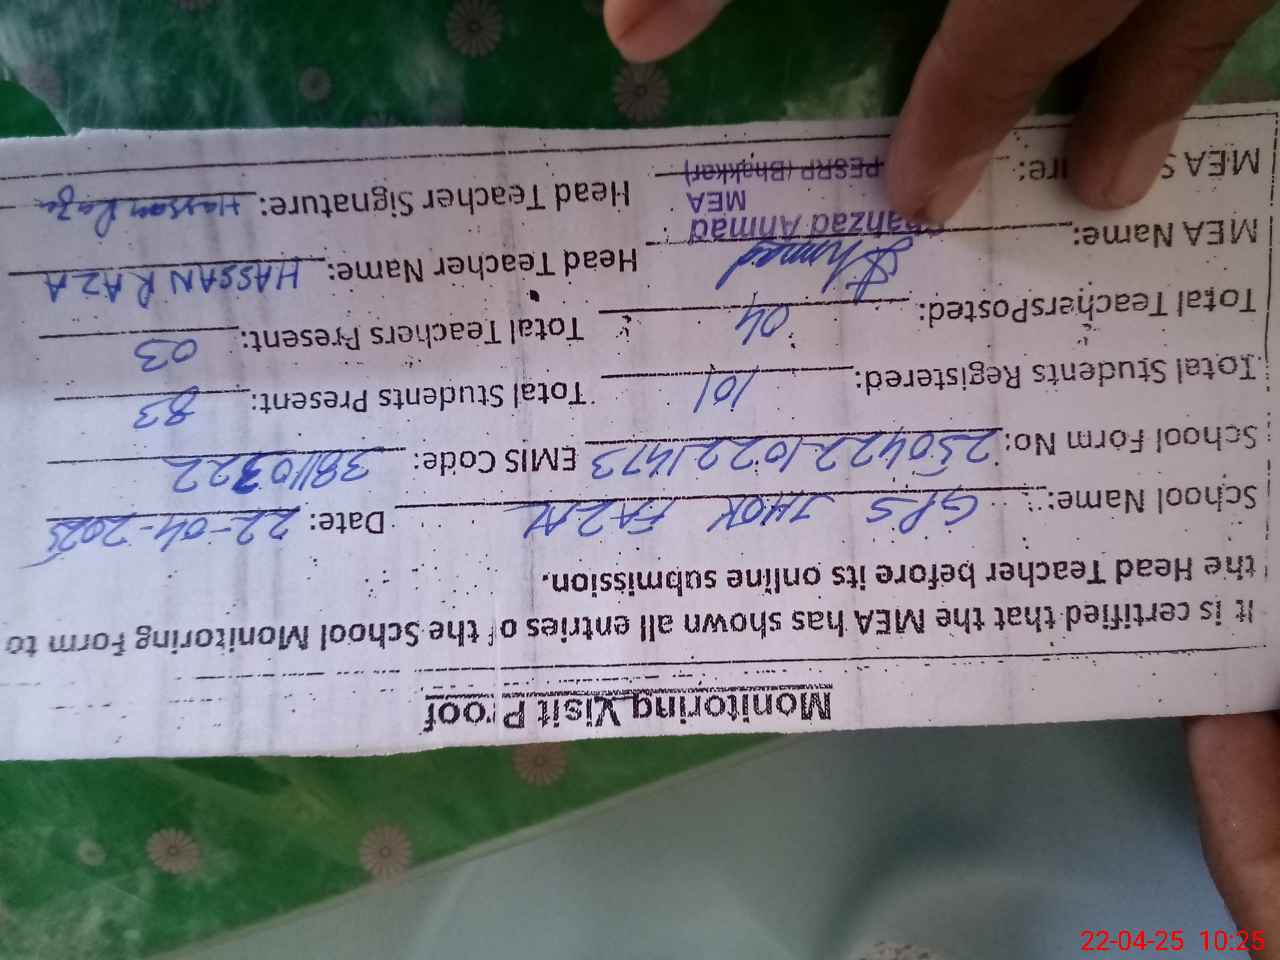 Monitoring Visit Proof
It is certified that the MEA has shown all entries of the School Monitoring Form to
the Head Teacher before its online submission.
School Name: GPS JHOK FAZAL Date: 22-04-2025
School Form No: 250422102221473 EMIS Code: 38110322
Total Students Registered: 101 Total Students Present: 83
Total TeachersPosted: 04 Total Teachers Present: 03
MEA Name: Ahmad Head Teacher Name: HASSAN RAZA
Shahzad Ahmad
MEA
MEA S re: PESRP (Bhakkar) Head Teacher Signature: Hassan Raza
22-04-25 10:25